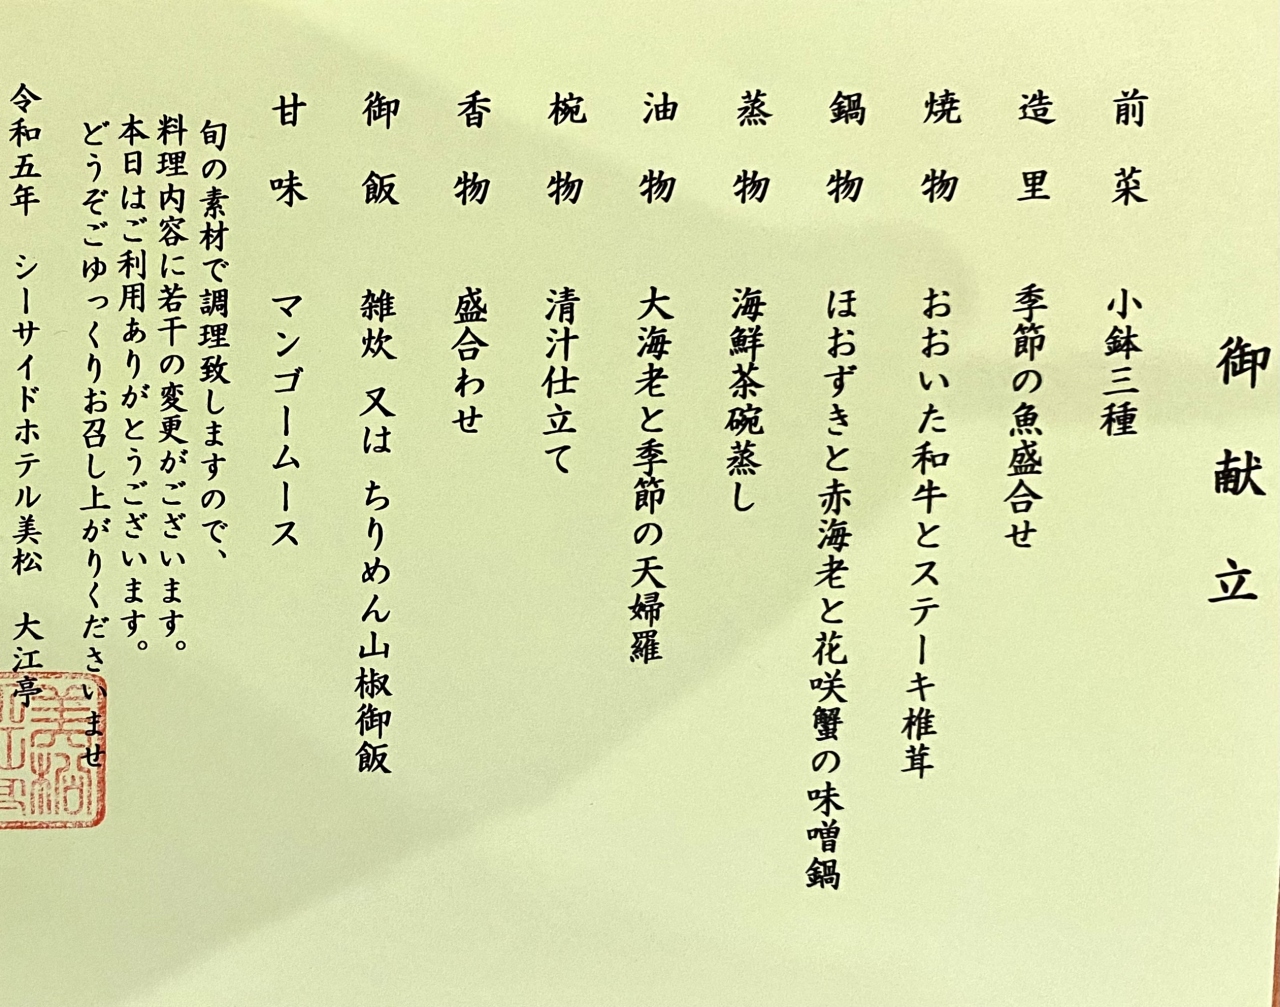 御献立
前菜 小鉢三種
造里 季節の魚盛合せ
焼物 おおいた和牛とステーキ椎茸
鍋物 ほおずきと赤海老と花咲蟹の味噌鍋
蒸物 海鮮茶碗蒸し
油物 大海老と季節の天婦羅
椀物 清汁仕立て
香物 盛合わせ
御飯 雑炊 又は ちりめん山椒御飯
甘味 マンゴームース
旬の素材で調理致しますので、
料理内容に若干の変更がございます。
本日はご利用ありがとうございます。
どうぞごゆっくりお召し上がりくださいませ
令和五年 シーサイドホテル美松 大江亭